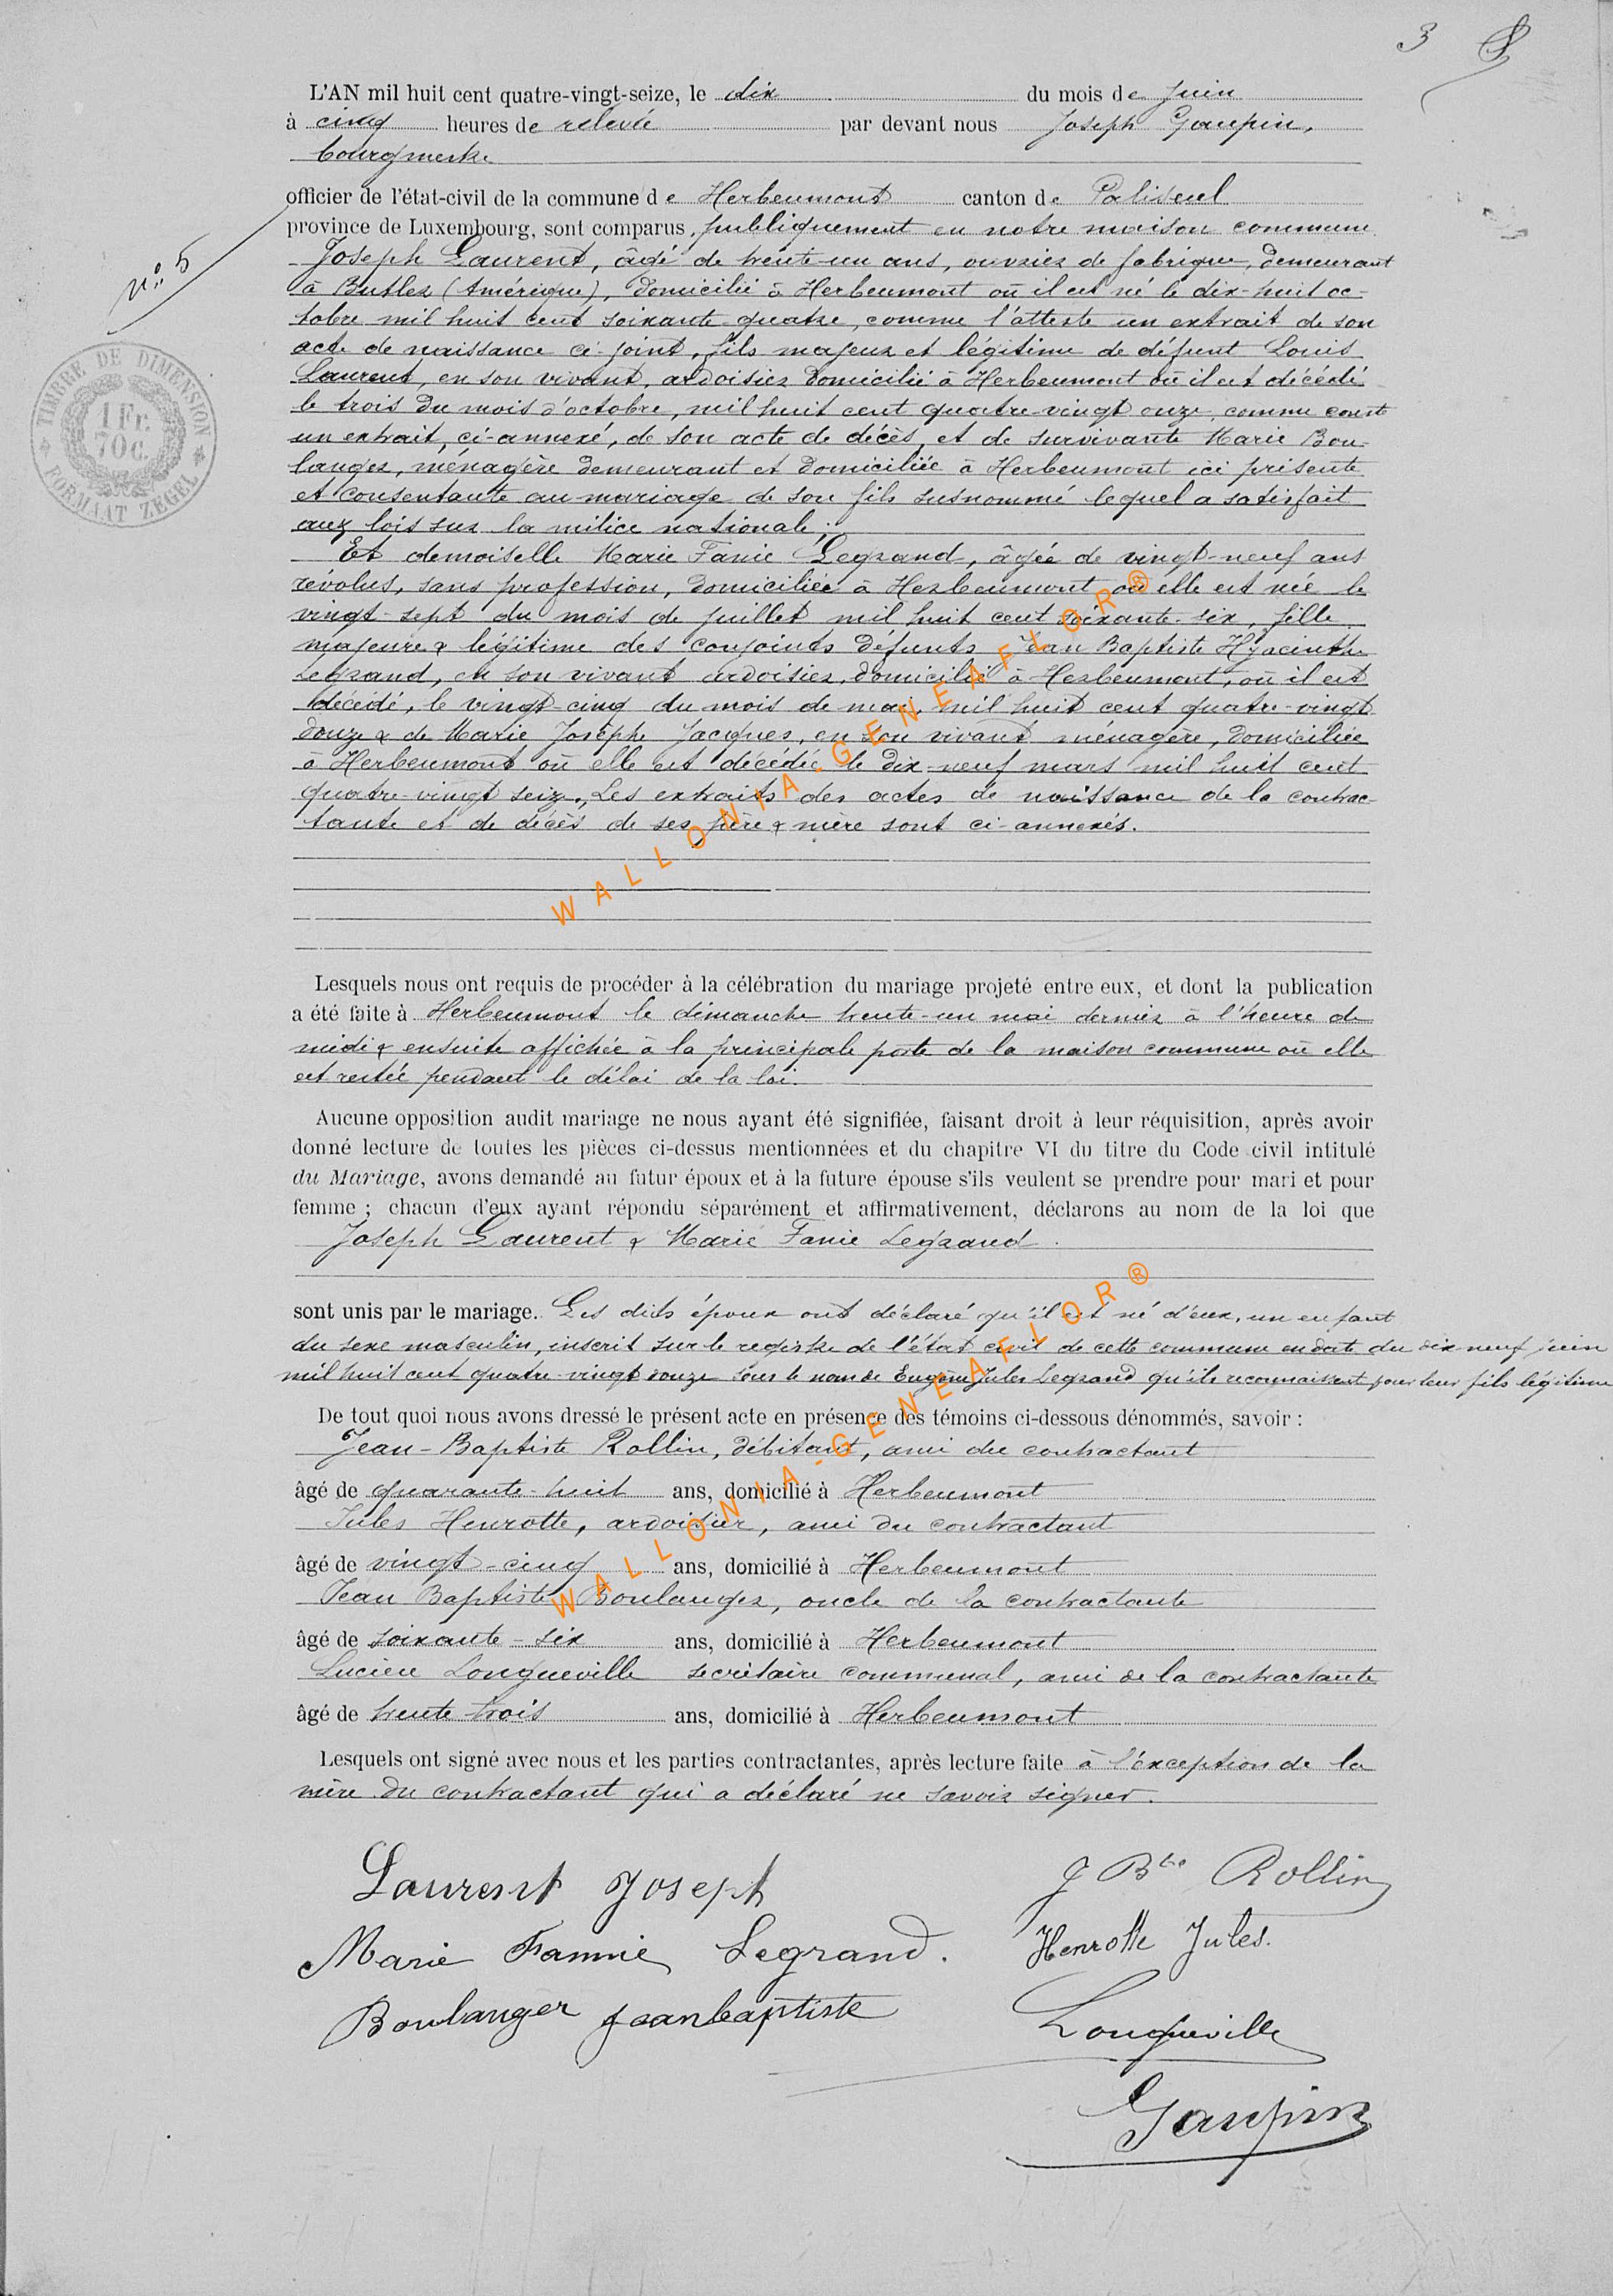 3
L'AN mil huit cent quatre-vingt-seize, le dix du mois de Juin
à cinq heures de relevée par devant nous Joseph Gaupin,
bourgmestre
officier de l'état-civil de la commune de Herbeumont canton de Paliseul
province de Luxembourg, sont comparus, publiquement en notre maison commune
n° 5
Joseph Laurent, âgé de trente-un ans, ouvrier de fabrique, demeurant
à Butler (Amérique), domicilié à Herbeumont où il est né le dix-huit oc-
tobre mil huit cent soixante-quatre, comme l'atteste un extrait de son
acte de naissance ci-joint, fils majeur et légitime de défunt Louis
Laurent, en son vivant, ardoisier domicilié à Herbeumont où il est décédé
le trois du mois d'octobre, mil huit cent quatre-vingt onze, comme conste
un extrait, ci-annexé, de son acte de décès, et de survivante Marie Bou-
langer, ménagère demeurant et domiciliée à Herbeumont ici présente
et consentante au mariage de son fils susnommé lequel a satisfait
aux lois sur la milice nationale;
TIMBRE DE DIMENSION
1 Fr.
70 c.
FORMAAT ZEGEL
Et demoiselle Marie Fanie Legrand, âgée de vingt-neuf ans
révolus, sans profession, domiciliée à Herbeumont où elle est née le
vingt-sept du mois de juillet mil huit cent soixante-six, fille
majeure & légitime des conjoints défunts Jean Baptiste Hyacinthe
Legrand, en son vivant ardoisier, domicilié à Herbeumont, où il est
décédé, le vingt-cinq du mois de mai, mil huit cent quatre-vingt
douze & de Marie Josèphe Jacques, en son vivant ménagère, domiciliée
à Herbeumont où elle est décédée le dix-neuf mars mil huit cent
quatre-vingt seize. Les extraits des actes de naissance de la contrac-
tante et de décès de ses père & mère sont ci-annexés.
WALLONIA-GENEAFLOR®
Lesquels nous ont requis de procéder à la célébration du mariage projeté entre eux, et dont la publication
a été faite à Herbeumont le dimanche trente-un mai dernier à l'heure de
midi & ensuite affichée à la principale porte de la maison commune où elle
est restée pendant le délai de la loi.
Aucune opposition audit mariage ne nous ayant été signifiée, faisant droit à leur réquisition, après avoir
donné lecture de toutes les pièces ci-dessus mentionnées et du chapitre VI du titre du Code civil intitulé
du Mariage, avons demandé au futur époux et à la future épouse s'ils veulent se prendre pour mari et pour
femme ; chacun d'eux ayant répondu séparément et affirmativement, déclarons au nom de la loi que
Joseph Laurent & Marie Fanie Legrand.
sont unis par le mariage. Les dits époux ont déclaré qu'il est né d'eux, un enfant
du sexe masculin, inscrit sur le registre de l'état civil de cette commune en date du dix-neuf juin
mil huit cent quatre-vingt douze sous le nom de Eugène Jules Legrand qu'ils reconnaissent pour leur fils légitime
De tout quoi nous avons dressé le présent acte en présence des témoins ci-dessous dénommés, savoir :
Jean-Baptiste Rollin, débitant, ami du contractant
âgé de quarante-huit ans, domicilié à Herbeumont
Jules Henrotte, ardoisier, ami du contractant
âgé de vingt-cinq ans, domicilié à Herbeumont
Jean Baptiste Boulanger, oncle de la contractante
âgé de soixante-six ans, domicilié à Herbeumont
Lucien Longueville secrétaire communal, ami de la contractante
âgé de trente-trois ans, domicilié à Herbeumont
WALLONIA-GENEAFLOR®
Lesquels ont signé avec nous et les parties contractantes, après lecture faite à l'exception de la
mère du contractant qui a déclaré ne savoir signer.
Laurent Joseph
J Bte Rollin
Marie Fannie Legrand.
Henrotte Jules.
Boulanger jeanbaptiste
Longueville
Gaupin